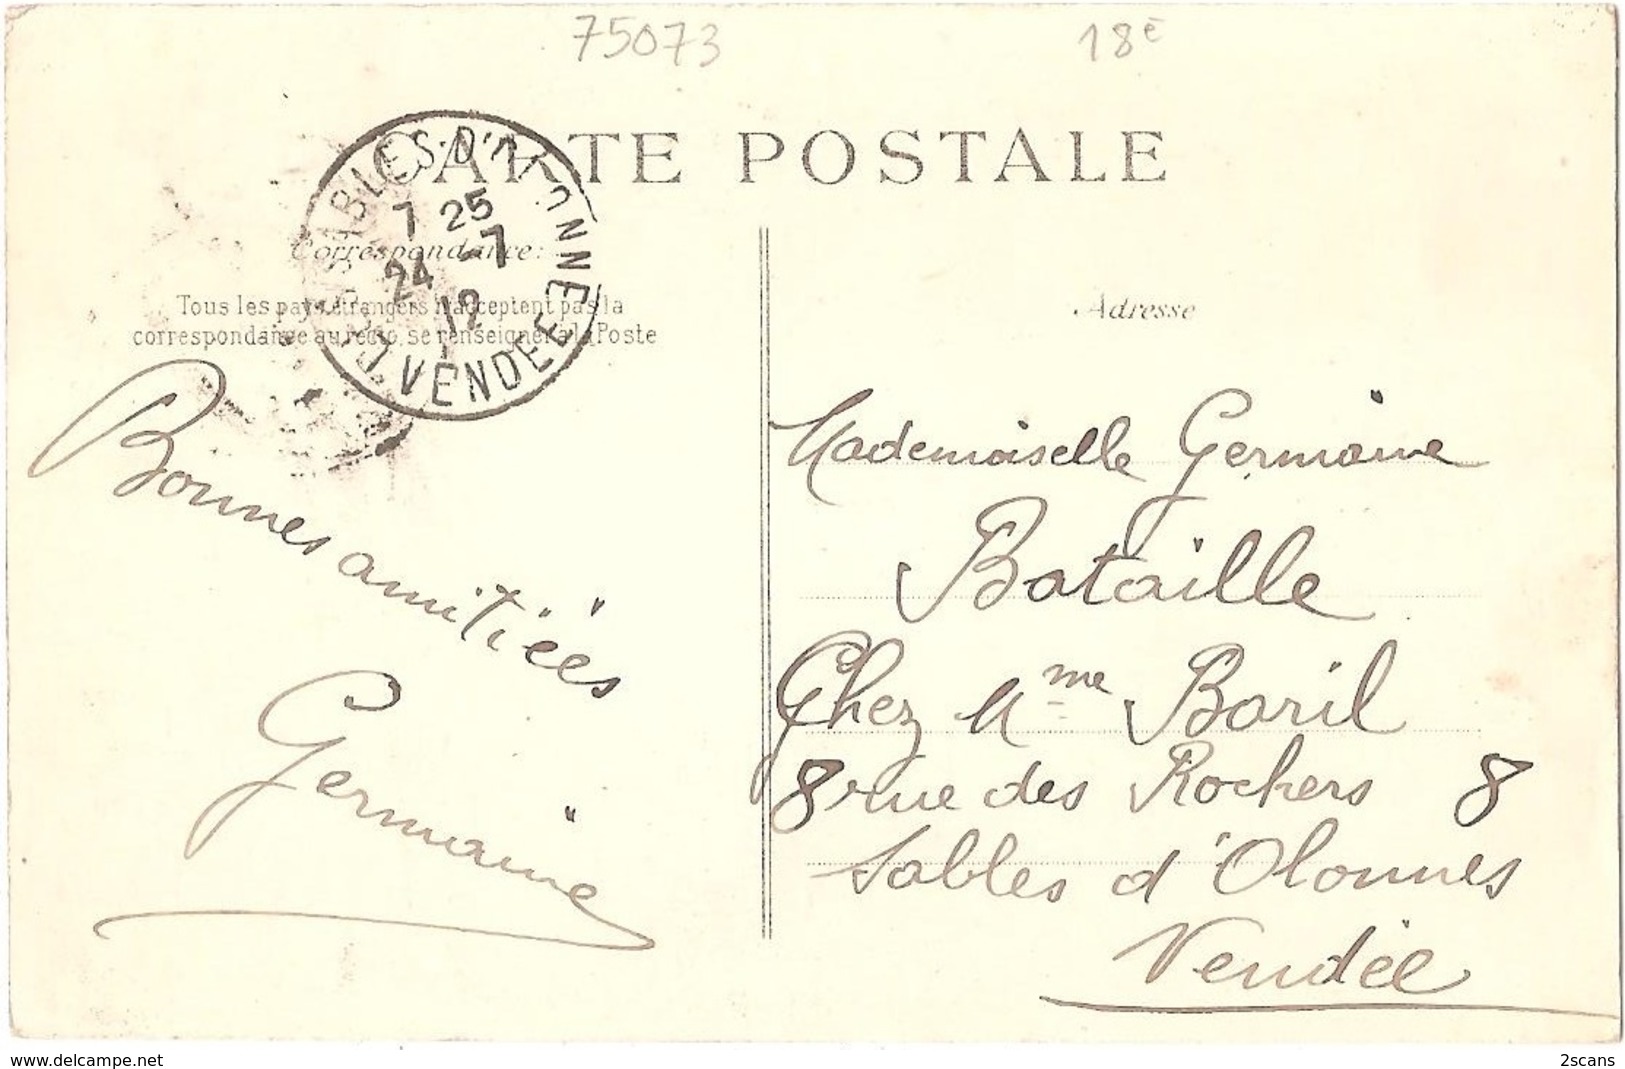 75073 18e
CARTE POSTALE
SABLES-D'OLONNE
7 25
24 -7
12
VENDEE
Correspondance:
Tous les pays étrangers n'acceptent pas la
correspondance au recto, se renseigner à la Poste
Bonnes amitiées
Germaine
Adresse
Mademoiselle Germaine
Bataille
Chez Mme Baril
8 rue des Rochers 8
Sables d'Olonnes
Vendée
www.delcampe.net
2scans